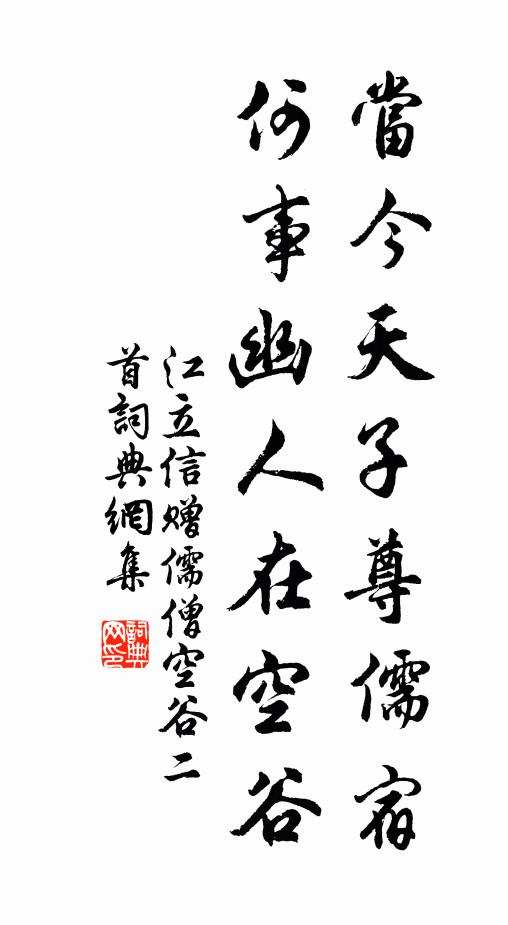 當今天子尊儒宿
何事幽人在空谷
江立信贈儒僧空谷二
首詞典網集
詞典網印